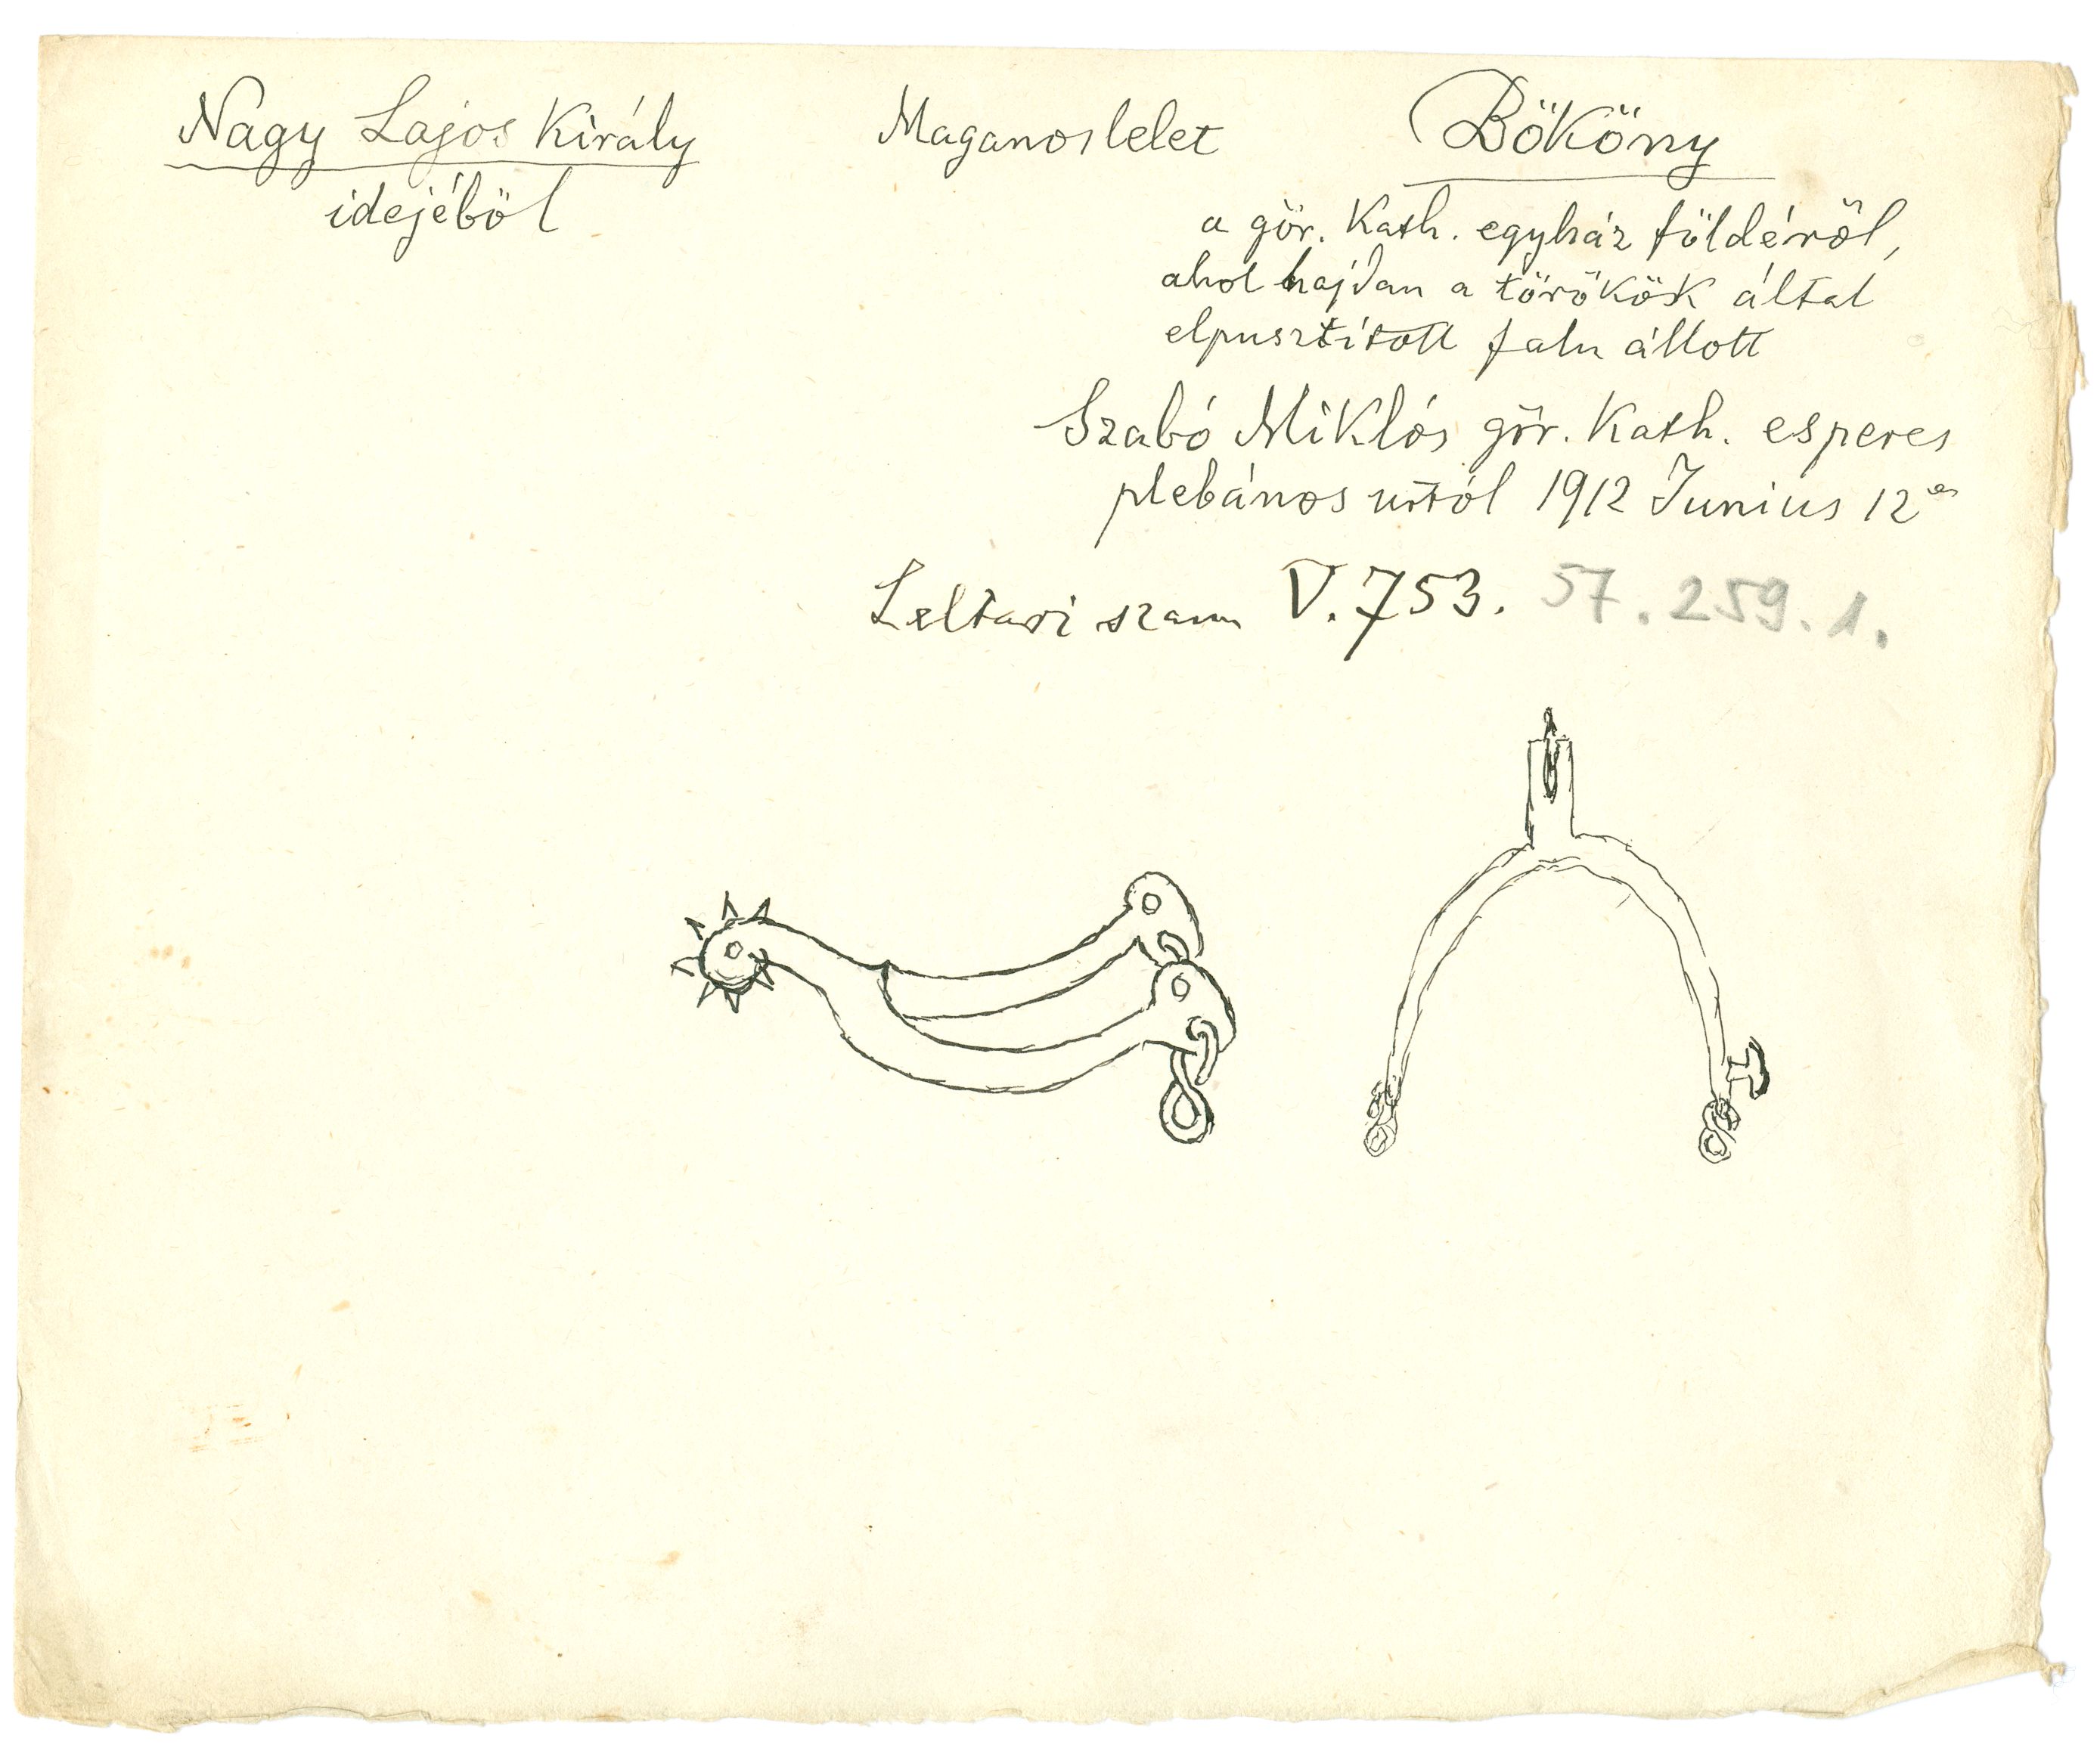 Nagy Lajos Király
idejéből
Maganos lelet
Bököny
a gör. Kath. egyház földéről,
ahol hajdan a törökök által
elpusztított falu állott
Szabó Miklós gör. Kath. esperes
plebános úrtól 1912 Junius 12én
Leltari szam V.753. 57.259.1.